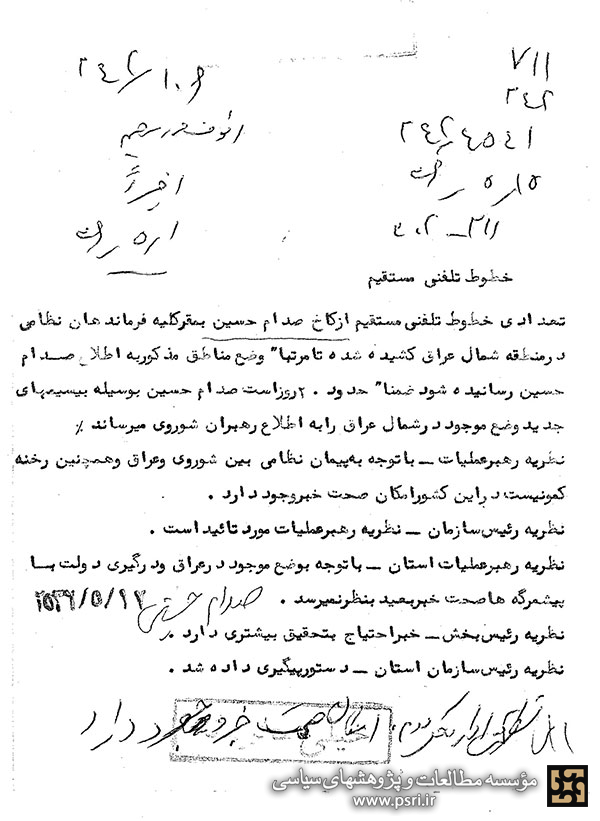 ۷۱۱
۲۴۲/۱۰۶
۳۴۲
۲۴۲/۴۵۴۱
اخیراً
۳۰۲-۲۱۱
خطوط تلفنی مستقیم
تعدادی خطوط تلفنی مستقیم ازکاخ صدام حسین بمقرکلیه فرماندهان نظامی
درمنطقه شمال عراق کشیده شده تا مرتبا" وضع مناطق مذکوربه اطلاع صدام
حسین رسانیده شود ضمنا" حدود ۲۰روزاست صدام حسین بوسیله بیسیمهای
جدید وضع موجود درشمال عراق رابه اطلاع رهبران شوروی میرساند ٪
نظریه رهبرعملیات ــ باتوجه به‌پیمان نظامی بین شوروی وعراق وهمچنین رخنه
کمونیست دراین کشورامکان صحت خبروجود دارد .
نظریه رئیس‌سازمان ــ نظریه رهبرعملیات مورد تائید است .
نظریه رهبرعملیات استان ــ باتوجه بوضع موجود درعراق ودرگیری دولت با
پیشمرگه هاصحت خبربعید بنظرنمیرسد . صدام حسین ۲۵۳۶/۵/۱۲
نظریه رئیس‌بخش ــ خبراحتیاج بتحقیق بیشتری دارد ٪
نظریه رئیس‌سازمان استان ــ دستورپیگیری داده شد .
امکان صحت خبر وجود دارد
مؤسسه مطالعات و پژوهشهای سیاسی
www.psri.ir